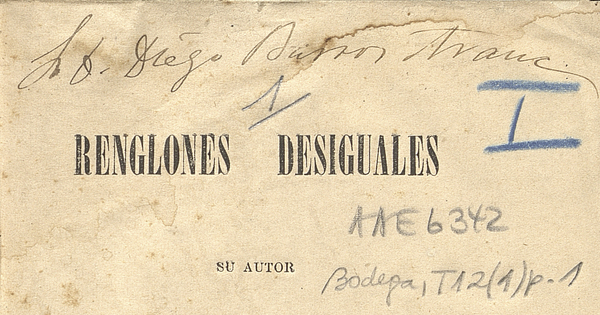 Sr. D. Diégo Barros Arana.
1
I
RENGLONES DESIGUALES
AAE6342
SU AUTOR
Bodega, T12(1)p.1